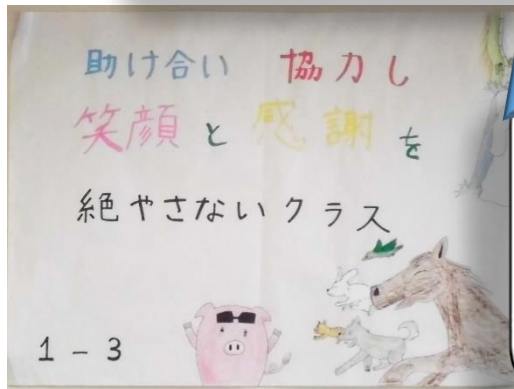 助け合い 協力し
笑顔と感謝を
絶やさないクラス
1-3